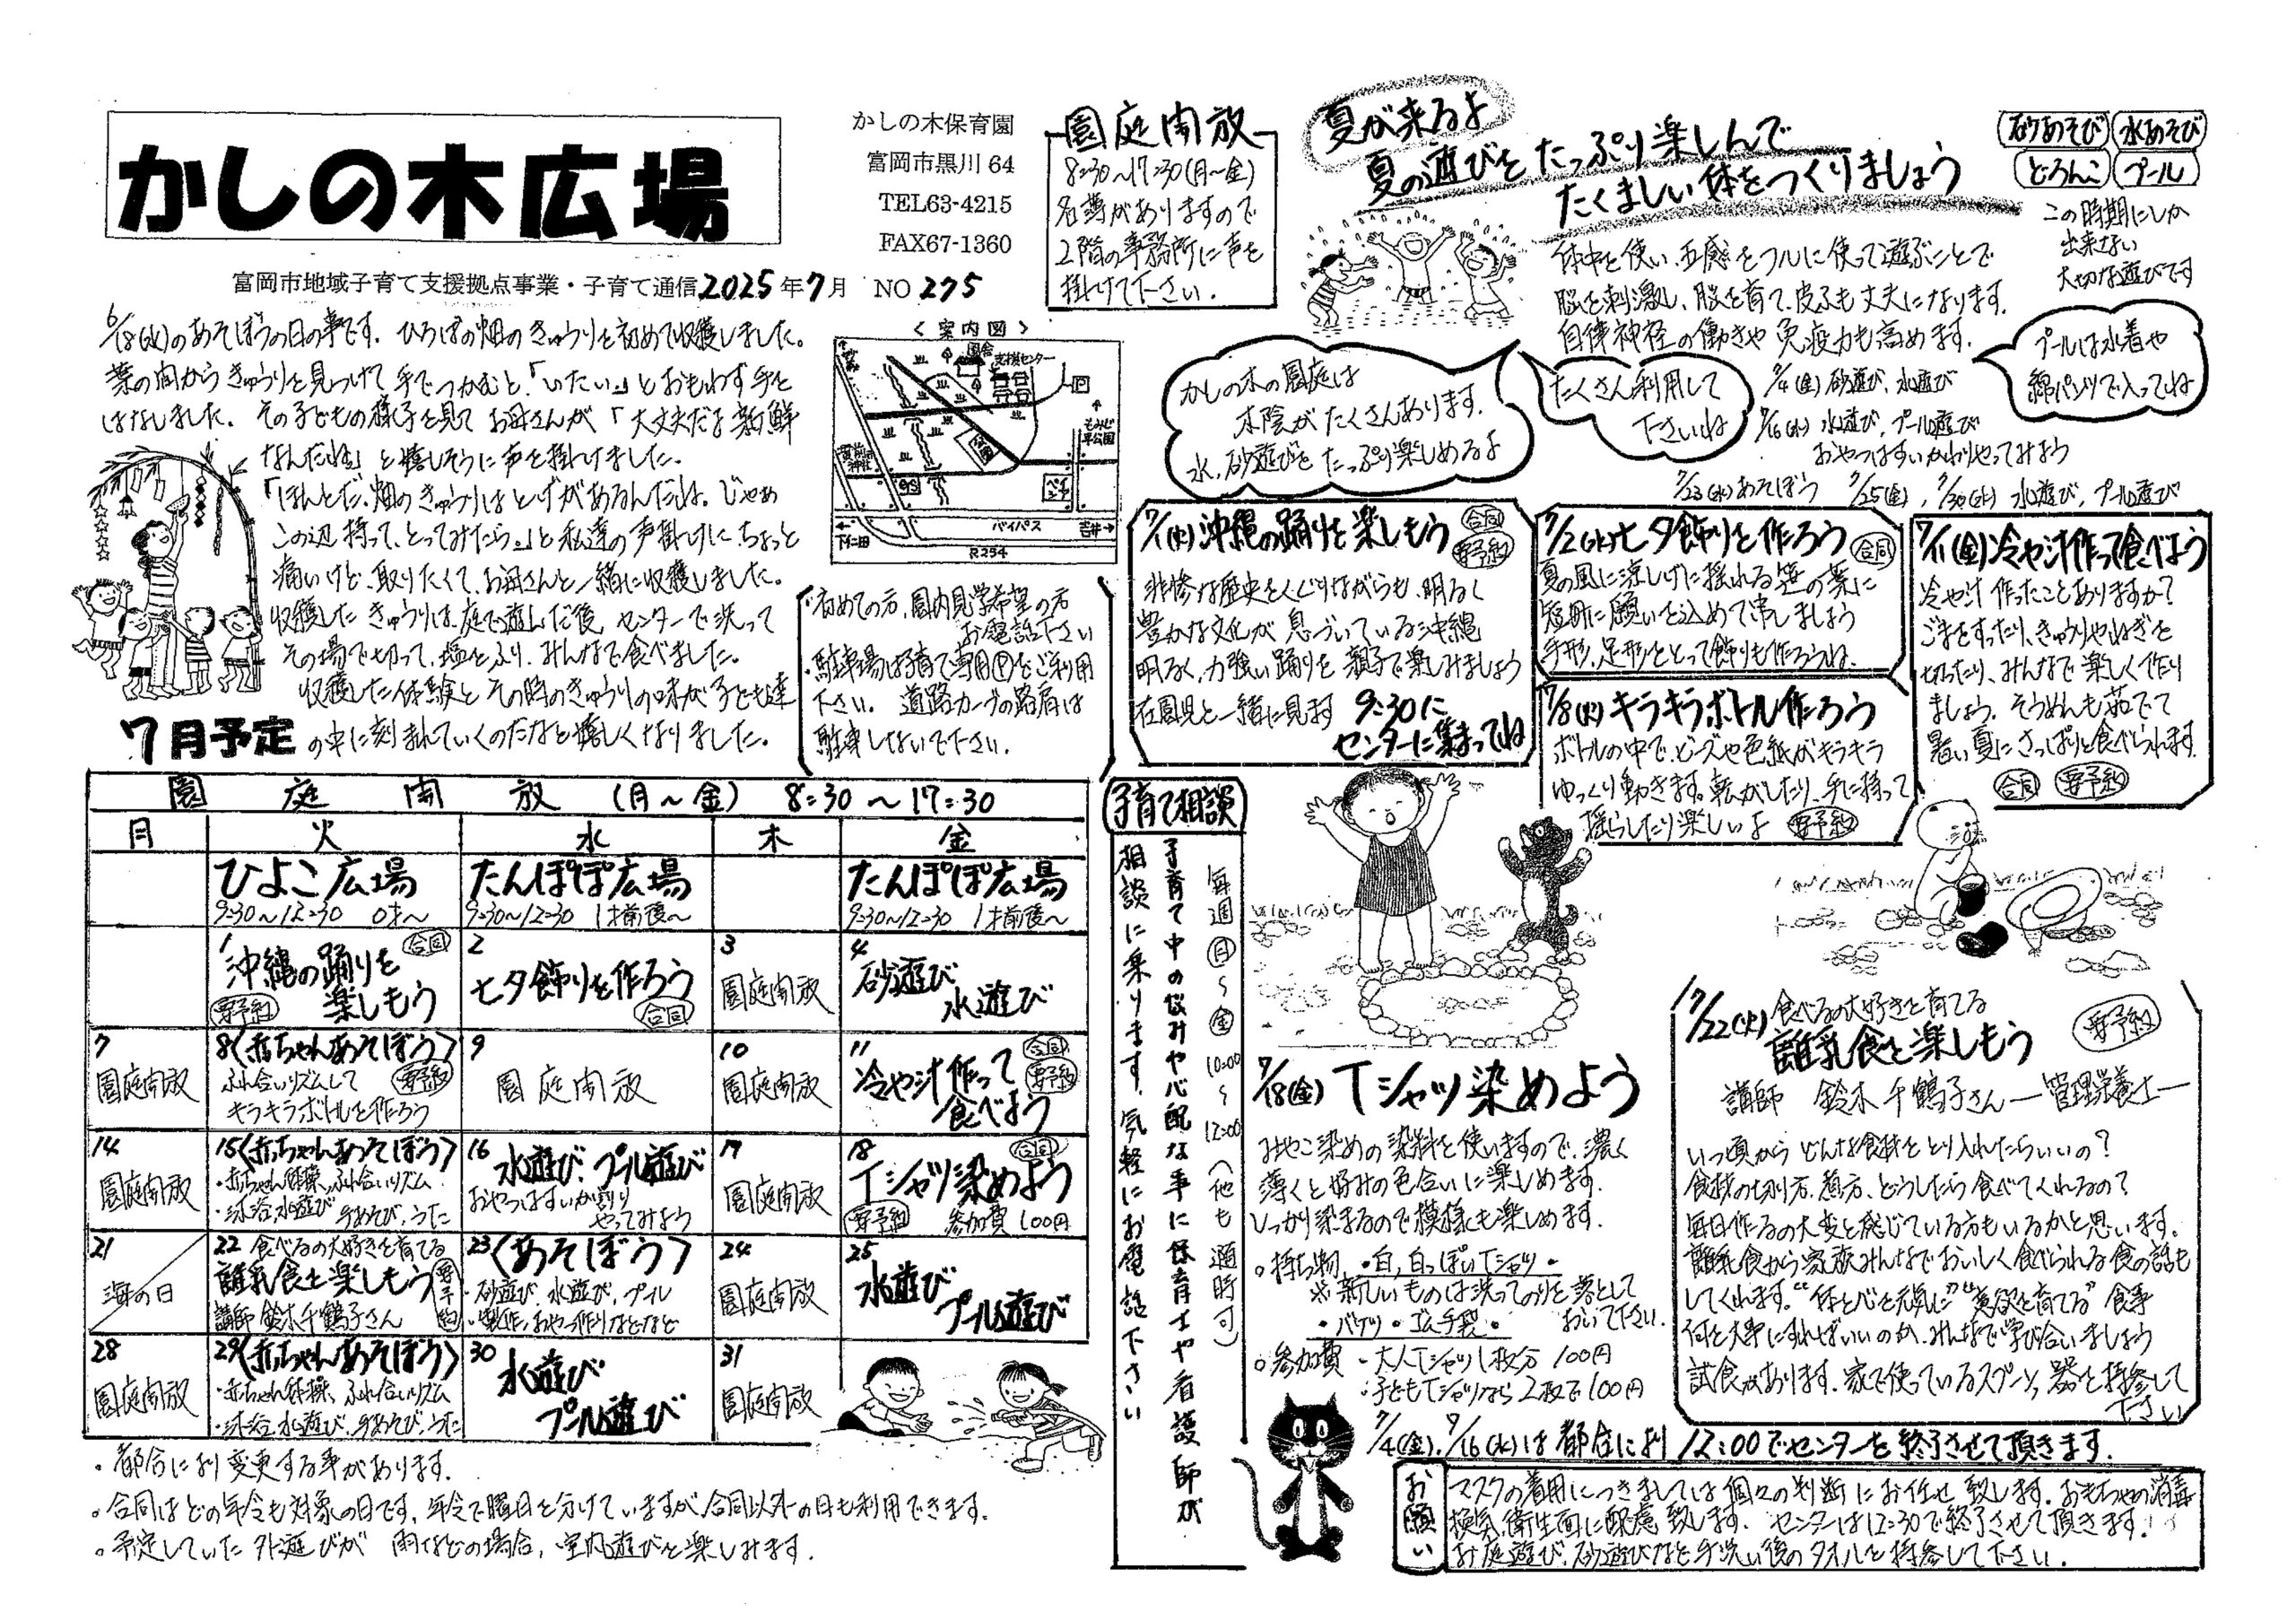 かしの木広場
かしの木保育園
富岡市黒川 64
TEL63-4215
FAX67-1360
富岡市地域子育て支援拠点事業・子育て通信 2025年7月 NO 275
園庭開放
8:30～17:30(月～金)
名簿がありますので
2階の事務所に声を
掛けて下さい.
夏が来るよ
夏の遊びを たっぷり楽しんで
たくましい体をつくりましょう
砂あそび 水あそび
どろんこ プール
この時期にしか
出来ない
大切な遊びです
体中を使い、五感をフルに使って遊ぶことで
脳を刺激し、脳を育て、皮ふも丈夫になります.
自律神経の働きや 免疫力も高めます.
プールは水着や
綿パンツで入ってね
かしの木の園庭は
木陰がたくさんあります.
水、砂遊びを たっぷり楽しめるよ
たくさん利用して
下さいね
7/4(金) 砂遊び、水遊び
7/16(水) 水遊び、プール遊び
おやつはすいかわりやってみよう
7/23(水)あそぼう 7/25(金), 7/30(水) 水遊び, プール遊び
6/18(水)のあそぼうの日の事です. ひろばの畑のきゅうりを初めて収穫しました.
葉の間からきゅうりを見つけて手でつかむと、「いたい。」とおもわず手を
はなしました. その子どもの様子を見て お母さんが「大丈夫だよ新鮮
なんだね」と嬉しそうに声を掛けました.
「ほんとだ、畑のきゅうりはとげがあるんだね. じゃあ
この辺 持って、とってみたら。」と私達の声掛けに、ちょっと
痛いけど、取りたくて、お母さんと一緒に収穫しました.
収穫したきゅうりは、庭で遊んだ後、センターで洗って
その場で切って、塩をふり、みんなで食べました.
収穫した体験と その時のきゅうりの味が 子ども達
の中に刻まれていくのだなと嬉しくなりました.
〈 案内図 〉
支援センター
P
もみじ平公園
バイパス
下仁田
吉井
R254
・初めての方、園内見学希望の方
お電話下さい
・駐車場は子育て専用Ⓟをご利用
下さい. 道路カーブの路肩は
駐車しないで下さい.
7/1(火)沖縄の踊りを楽しもう 合同 要予約
悲惨な歴史をくぐりながらも、明るく
豊かな文化が 息づいている沖縄
明るく、力強い踊りを 親子で楽しみましょう
在園児と一緒に見ます 9:30に
センターに集まってね
7/2(水)七夕飾りを作ろう 合同
夏の風に涼しげに揺れる笹の葉に
短冊に願いを込めて吊しましょう
手形、足形をとって飾りも作ろうね.
7/8(火)キラキラボトル作ろう
ボトルの中で、ビーズや色紙がキラキラ
ゆっくり動きます。転がしたり、手に持って
揺らしたり楽しいよ 要予約
7/11(金)冷や汁作って食べよう
冷や汁 作ったことありますか?
ごまをすったり、きゅうりやねぎを
切ったり、みんなで楽しく作り
ましょう. そうめんも茹でて
暑い夏にさっぱりと食べられます.
合同 要予約
7月予定
園庭開放 (月～金) 8:30～17:30
月 火 水 木 金
ひよこ広場 たんぽぽ広場 たんぽぽ広場
9:30～12:30 0才～ 9:30～12:30 1才前後～ 9:30～12:30 1才前後～
1 沖縄の踊りを楽しもう 合同 要予約
2 七夕飾りを作ろう 合同
3 園庭開放
4 砂遊び 水遊び
7 園庭開放
8〈赤ちゃんあそぼう〉
ふれ合いリズムして 要予約
キラキラボトルを作ろう
9 園庭開放
10 園庭開放
11 冷や汁作って食べよう 合同 要予約
14 園庭開放
15〈赤ちゃんあそぼう〉
・赤ちゃん体操、ふれ合いリズム
・沐浴、水遊び 手あそび、うた
16 水遊び、プール遊び
おやつはすいか割り
やってみよう
17 園庭開放
18 Tシャツ染めよう 合同
要予約 参加費 100円
21 海の日
22 食べるの大好きを育てる
離乳食を楽しもう 要予約
講師 鈴木千鶴子さん
23〈あそぼう〉
・砂遊び、水遊び、プール
・製作、おやつ作りなどなど
24 園庭開放
25 水遊び プール遊び
28 園庭開放
29〈赤ちゃんあそぼう〉
・赤ちゃん体操、ふれ合いリズム
・沐浴、水遊び、手あそび、うた
30 水遊び プール遊び
31 園庭開放
。都合により変更する事があります.
。合同はどの年令も対象の日です. 年令で曜日を分けていますが、合同以外の日も利用できます.
。予定していた外遊びが 雨などの場合、室内遊びを楽しみます.
子育て相談
毎週㊊～㊎10:00～12:00(他も随時可)
子育て中の悩みや心配な事に保育士や看護師が
相談に乗ります。気軽にお電話下さい
7/18(金) Tシャツ染めよう
みやこ染めの染料を使いますので、濃く
薄くと好みの色合いに楽しめます.
しっかり染まるので模様も楽しめます.
。持ち物 ・白,白っぽいTシャツ・
※新しいものは洗ってのりを落として
おいて下さい.
・バケツ・ゴム手袋・
。参加費 ・大人Tシャツ1枚分 100円
・子どもTシャツなら 2枚で100円
7/22(火) 食べるの大好きを育てる
離乳食を楽しもう 要予約
講師 鈴木千鶴子さん―管理栄養士―
いつ頃から どんな食材をとり入れたらいいの?
食材の切り方、煮方、どうしたら食べてくれるの?
毎日作るの大変と感じている方もいるかと思います.
離乳食から家族みんなでおいしく食べられる食の話も
してくれます. “体と心を元気に”“意欲を育てる”食事
何を大事にすればいいのか、みんなで学び合いましょう
試食があります. 家で使っているスプーン、器を持参して
下さい
7/4(金), 7/16(水)は 都合により 12:00でセンターを終了させて頂きます.
お願い
マスクの着用につきましては個々の判断にお任せ致します. おもちゃの消毒
換気、衛生面に配慮致します. センターは12:30で終了させて頂きます.
お庭遊び、砂遊びなど手洗い後のタオルを持参して下さい.